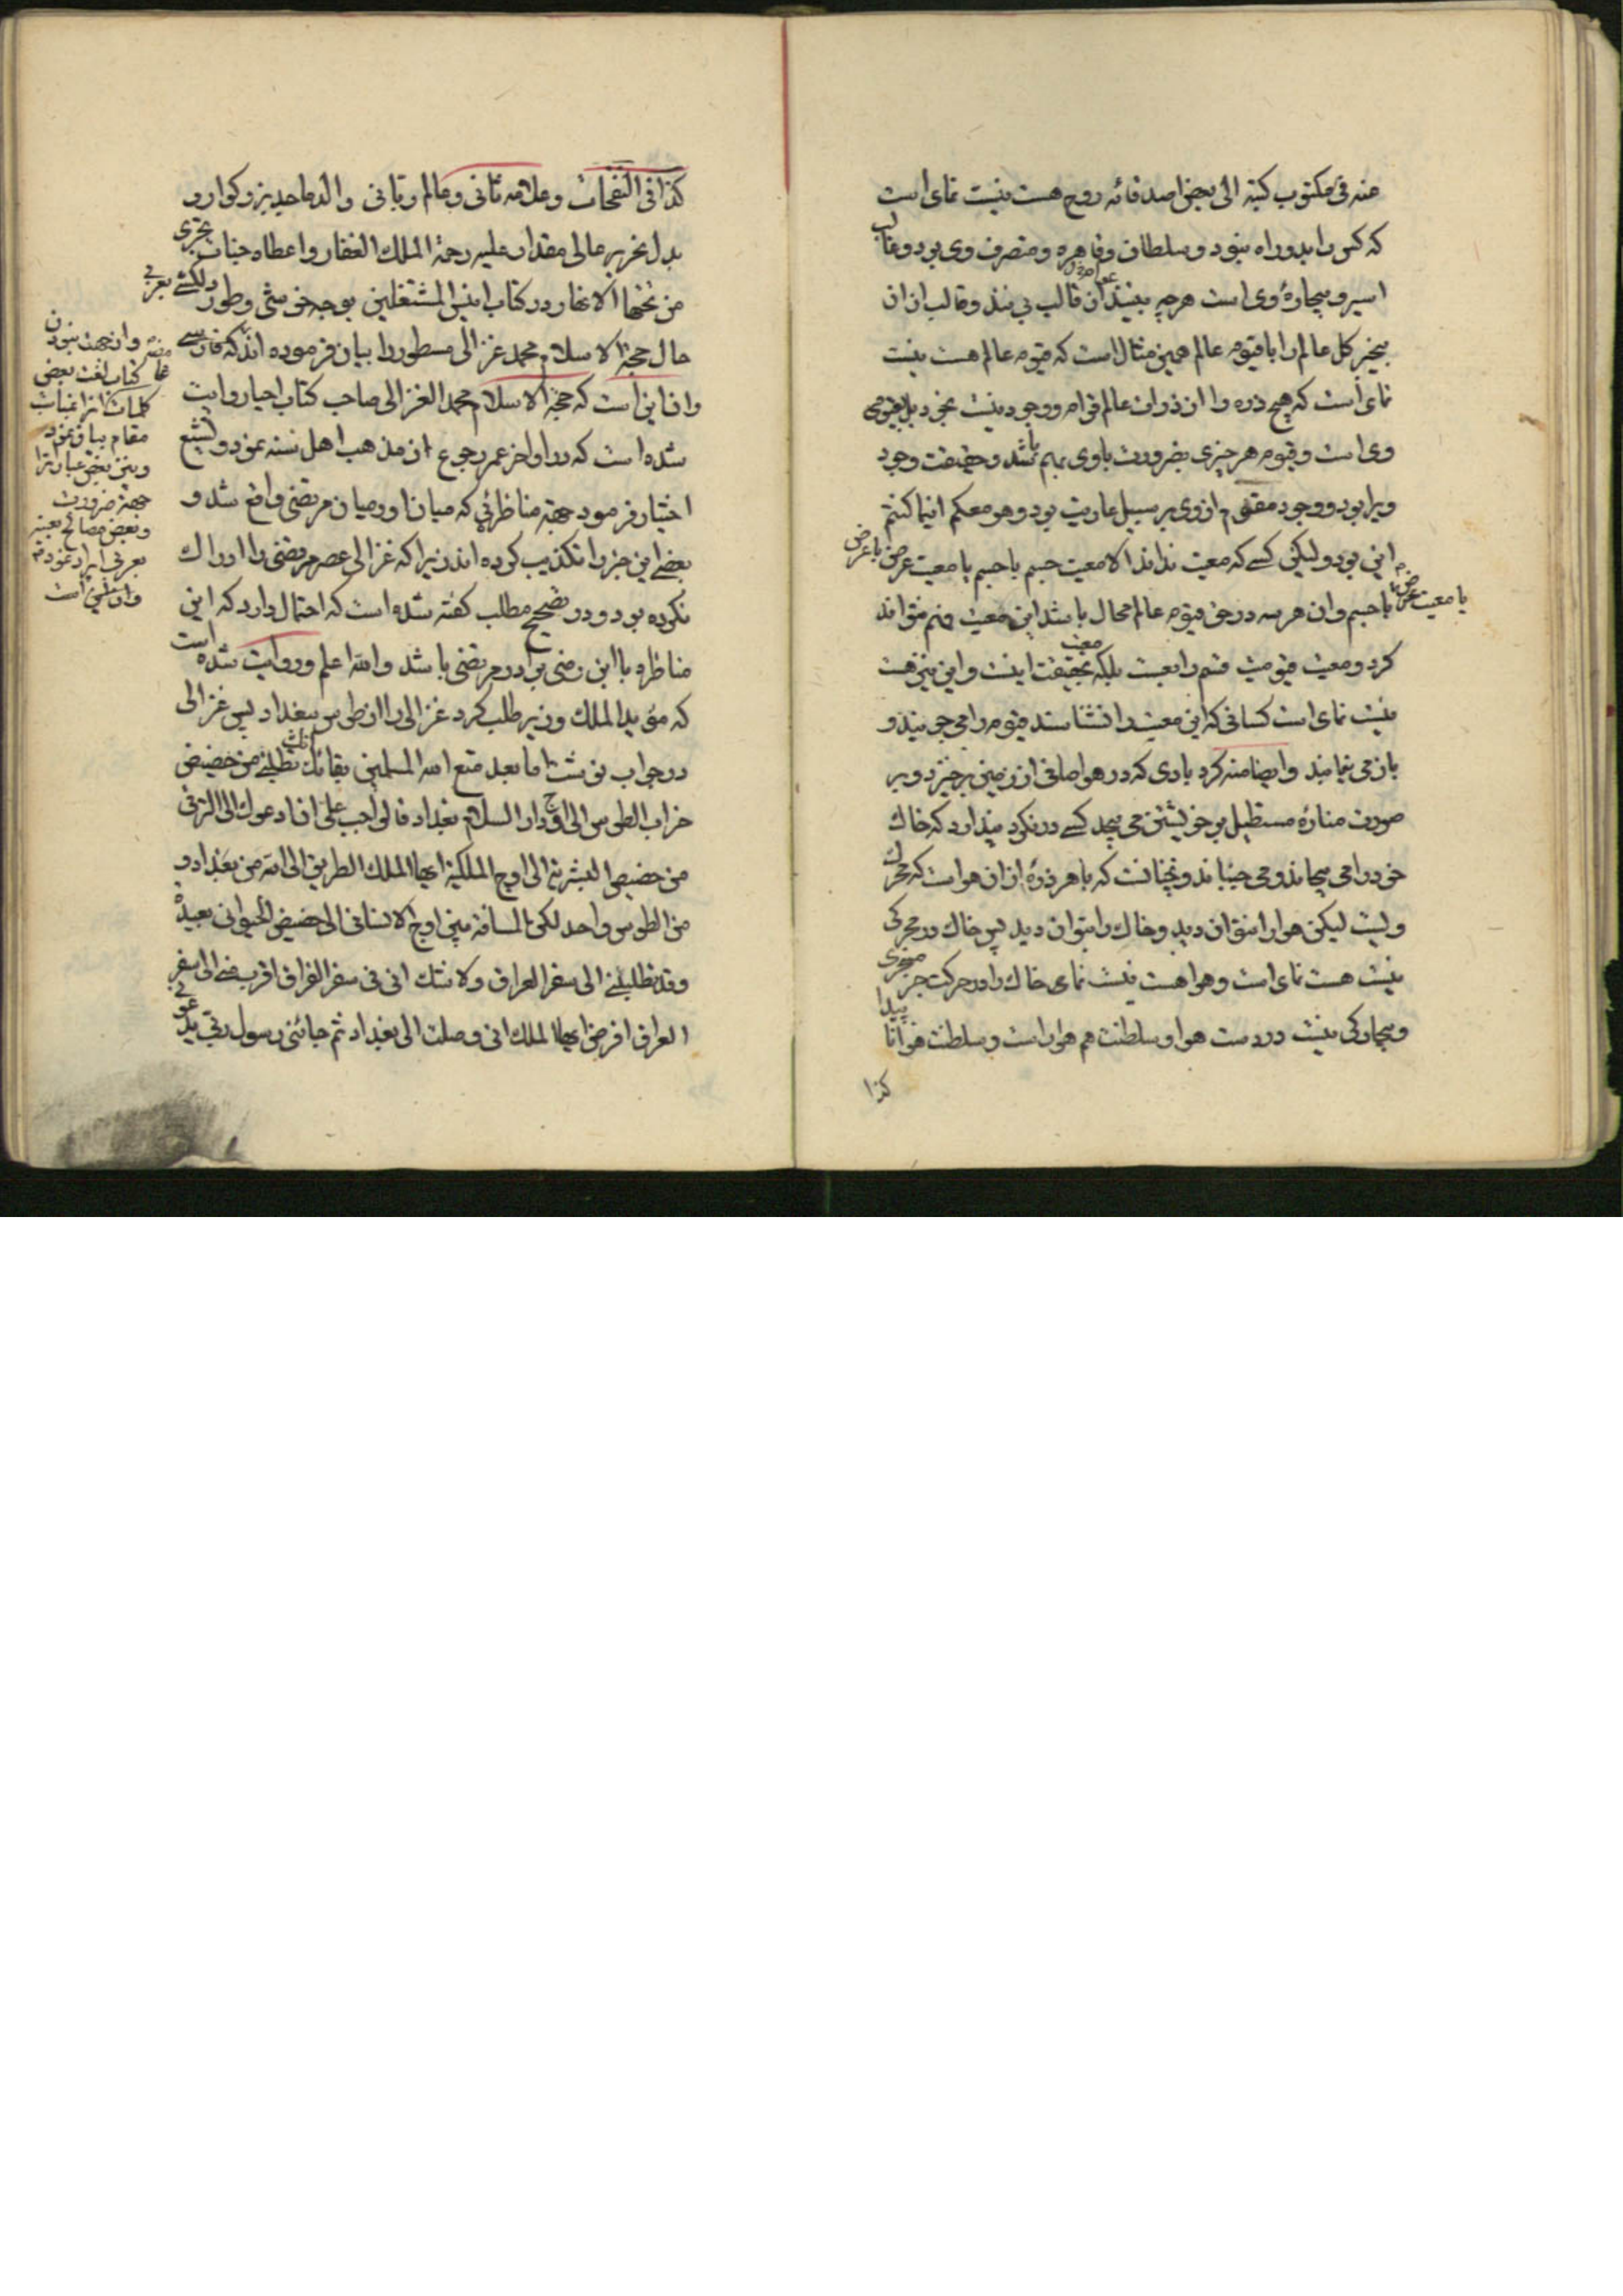 منه فی مکتوب کتبه الی بعض اصدقائه روح هست نیست نمای است
که کس را بدو راه نبود و سلطان و قاهره و متصرف وی بود و قالب
اسیر و بیچارهٔ وی است هر چه بینند از قالب بینند و قالب از ان
بیخبر کل عالم را با قیوم عالم همین مثال است که قیوم عالم هست نیست
نمای است که هیچ ذره را از ذرات عالم قوام و وجود نیست بخود بل بقیومی
وی است و قیوم هر چیزی بضرورت با وی بهم باشد و حقیقت وجود
ویرا بود و وجود مقوم از وی بر سبیل عاریت بود و هو معکم اینما کنتم
این بود ولیکن کسی که معیت نداند الا معیت جسم با جسم یا معیت عرض با عرض
یا معیت عرض با جسم و ان هر سه در حق قیوم عالم محال باشد این معیت فهم نتواند
کرد و معیت قیومیت قسم رابعست بلکه بحقیقت معیت اینست و این نیز هست
نیست نمای است کسانی که این معیت را نشناسند قیوم را می جویند و
باز می نیابند وایضا منه کرد بادی که در هوا صافی از زمین برخیزد و بر
صورت منارهٔ مستطیل بر خویشتن می پیچد کسی در نکرد پندارد که خاک
خود را می پیچاند و می جنباند و نچنانست که با هر ذرهٔ از ان هواست که محرک
ویست لیکن هوا را نتوان دید و خاک را بتوان دید پس خاک در محرکی
نیست هست نمای است و هوا هست نیست نمای خاک را در حرکت جز مسخری
و بیچارکی نیست در دست هوا و سلطنت هم هوا راست و سلطنت هوا نا پیدا
کذا
کذا فی النفحات و علامه ثانی و عالم ربانی والد ماجد بزرکوار و
بدل نحریر عالی مقدار علیه رحمة الملک الغفار و اعطاه جنات تجری
من تحتها الانهار در کتاب انیس المشتغلین بوجه خوشی و طور دلکشی بعربی
حال حجة الاسلام محمد غزالی مسطور را بیان فرموده اند که فارسی
و ان این است که حجة الاسلام محمد الغزالی صاحب کتاب احیا روایت
شده است که در اواخر عمر رجوع از مذهب اهل سنه نمود و تشیع
اختیار فرمود جهة مناظرئی که میان او و میان مرتضی واقع شد و
بعضی این خبر را تکذیب کرده اند زیرا که غزالی عصر مرتضی را ادراک
نکرده بود و در تصحیح مطلب کفته شده است که احتمال دارد که این
مناظره با ابن رضی برادر مرتضی باشد و الله اعلم و روایت شده است
که مؤید الملک وزیر طلب کرد غزالی را از طوس ببغداد پس غزالی
در جواب نوشت اما بعد متع الله المسلمین ببقائک انک تطلبنی من حضیض
خراب الطوس الی اوج دار السلام بغداد فالواجب علی ان ادعوک الی الترقی
من حضیض البشریة الی اوج الملکیة ایها الملک الطریق الی الله من بغداد و
من الطوس واحد لکن المسافة بین اوج الانسانی الی حضیض الحیوانی بعیدة
و قد تطلبنی الی سفر العراق ولا شک انی فی سفر الفراق اقرب منی الی سفر
العراق افرض ایها الملک انی وصلت الی بغداد ثم جائنی رسول ربی یدعونی
و از جهت نبودن
کتاب لغت بعضی
کلمات
مقام بیان نمود
و نیز بعض عبارات را
جهة ضرورت
و بعض مصالح بعینه
بعربی ایراد نموده